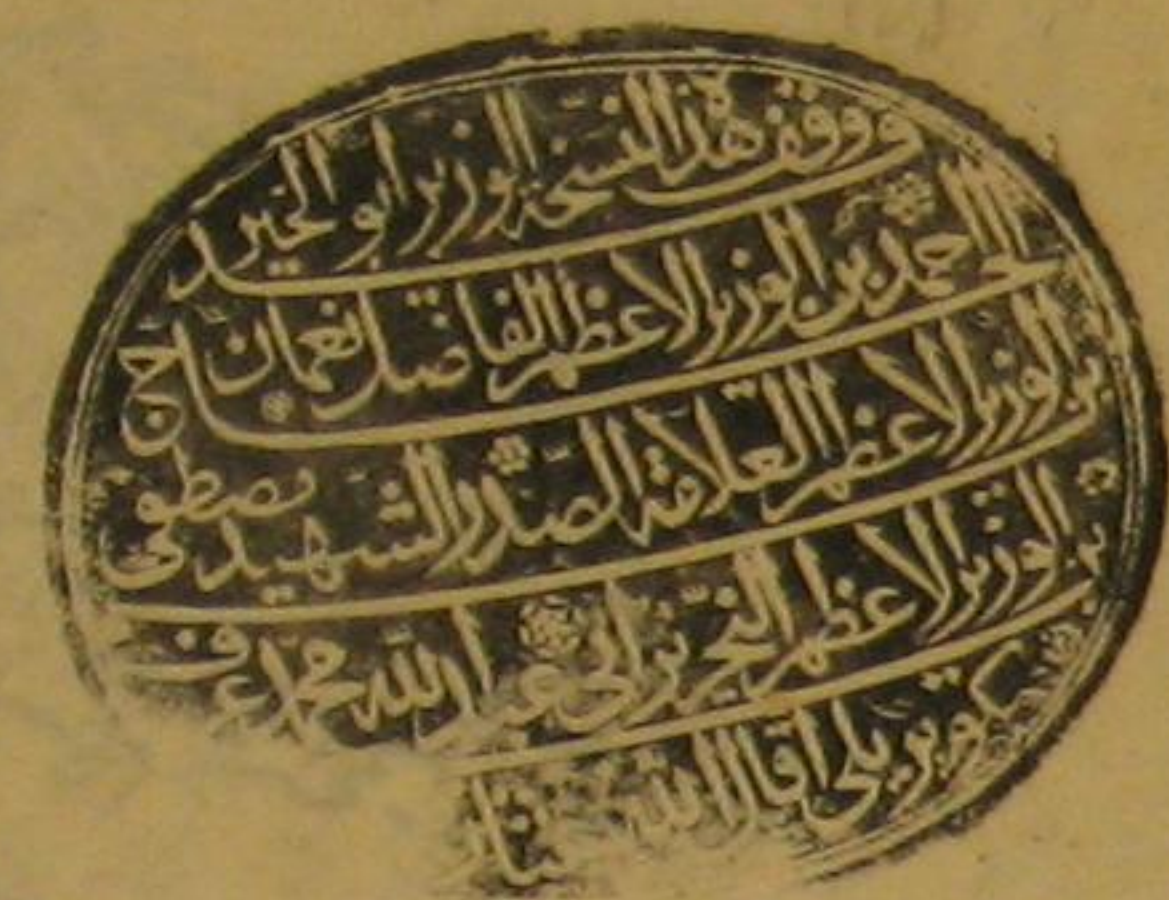 وقد وقف هذا النسخة الوزير ابو الخير
الحاج احمد بن الوزير الاعظم الفاضل نعمان
بن الوزير الاعظم العلامة الصدر الشهيد مصطفى
بن الوزير الاعظم النحرير ابى عبد الله محمد عرف
بكوپريلى اقال الله